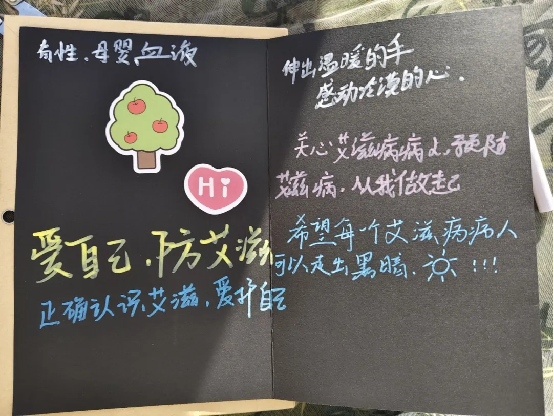 有性、母婴血液
Hi
爱自己、防艾滋
正确认识艾滋,爱护自己
伸出温暖的手
感动冷漠的心.
关心艾滋病病人,预防
艾滋病,从我做起
希望每一个艾滋病病人
可以走出黑暗.!!!